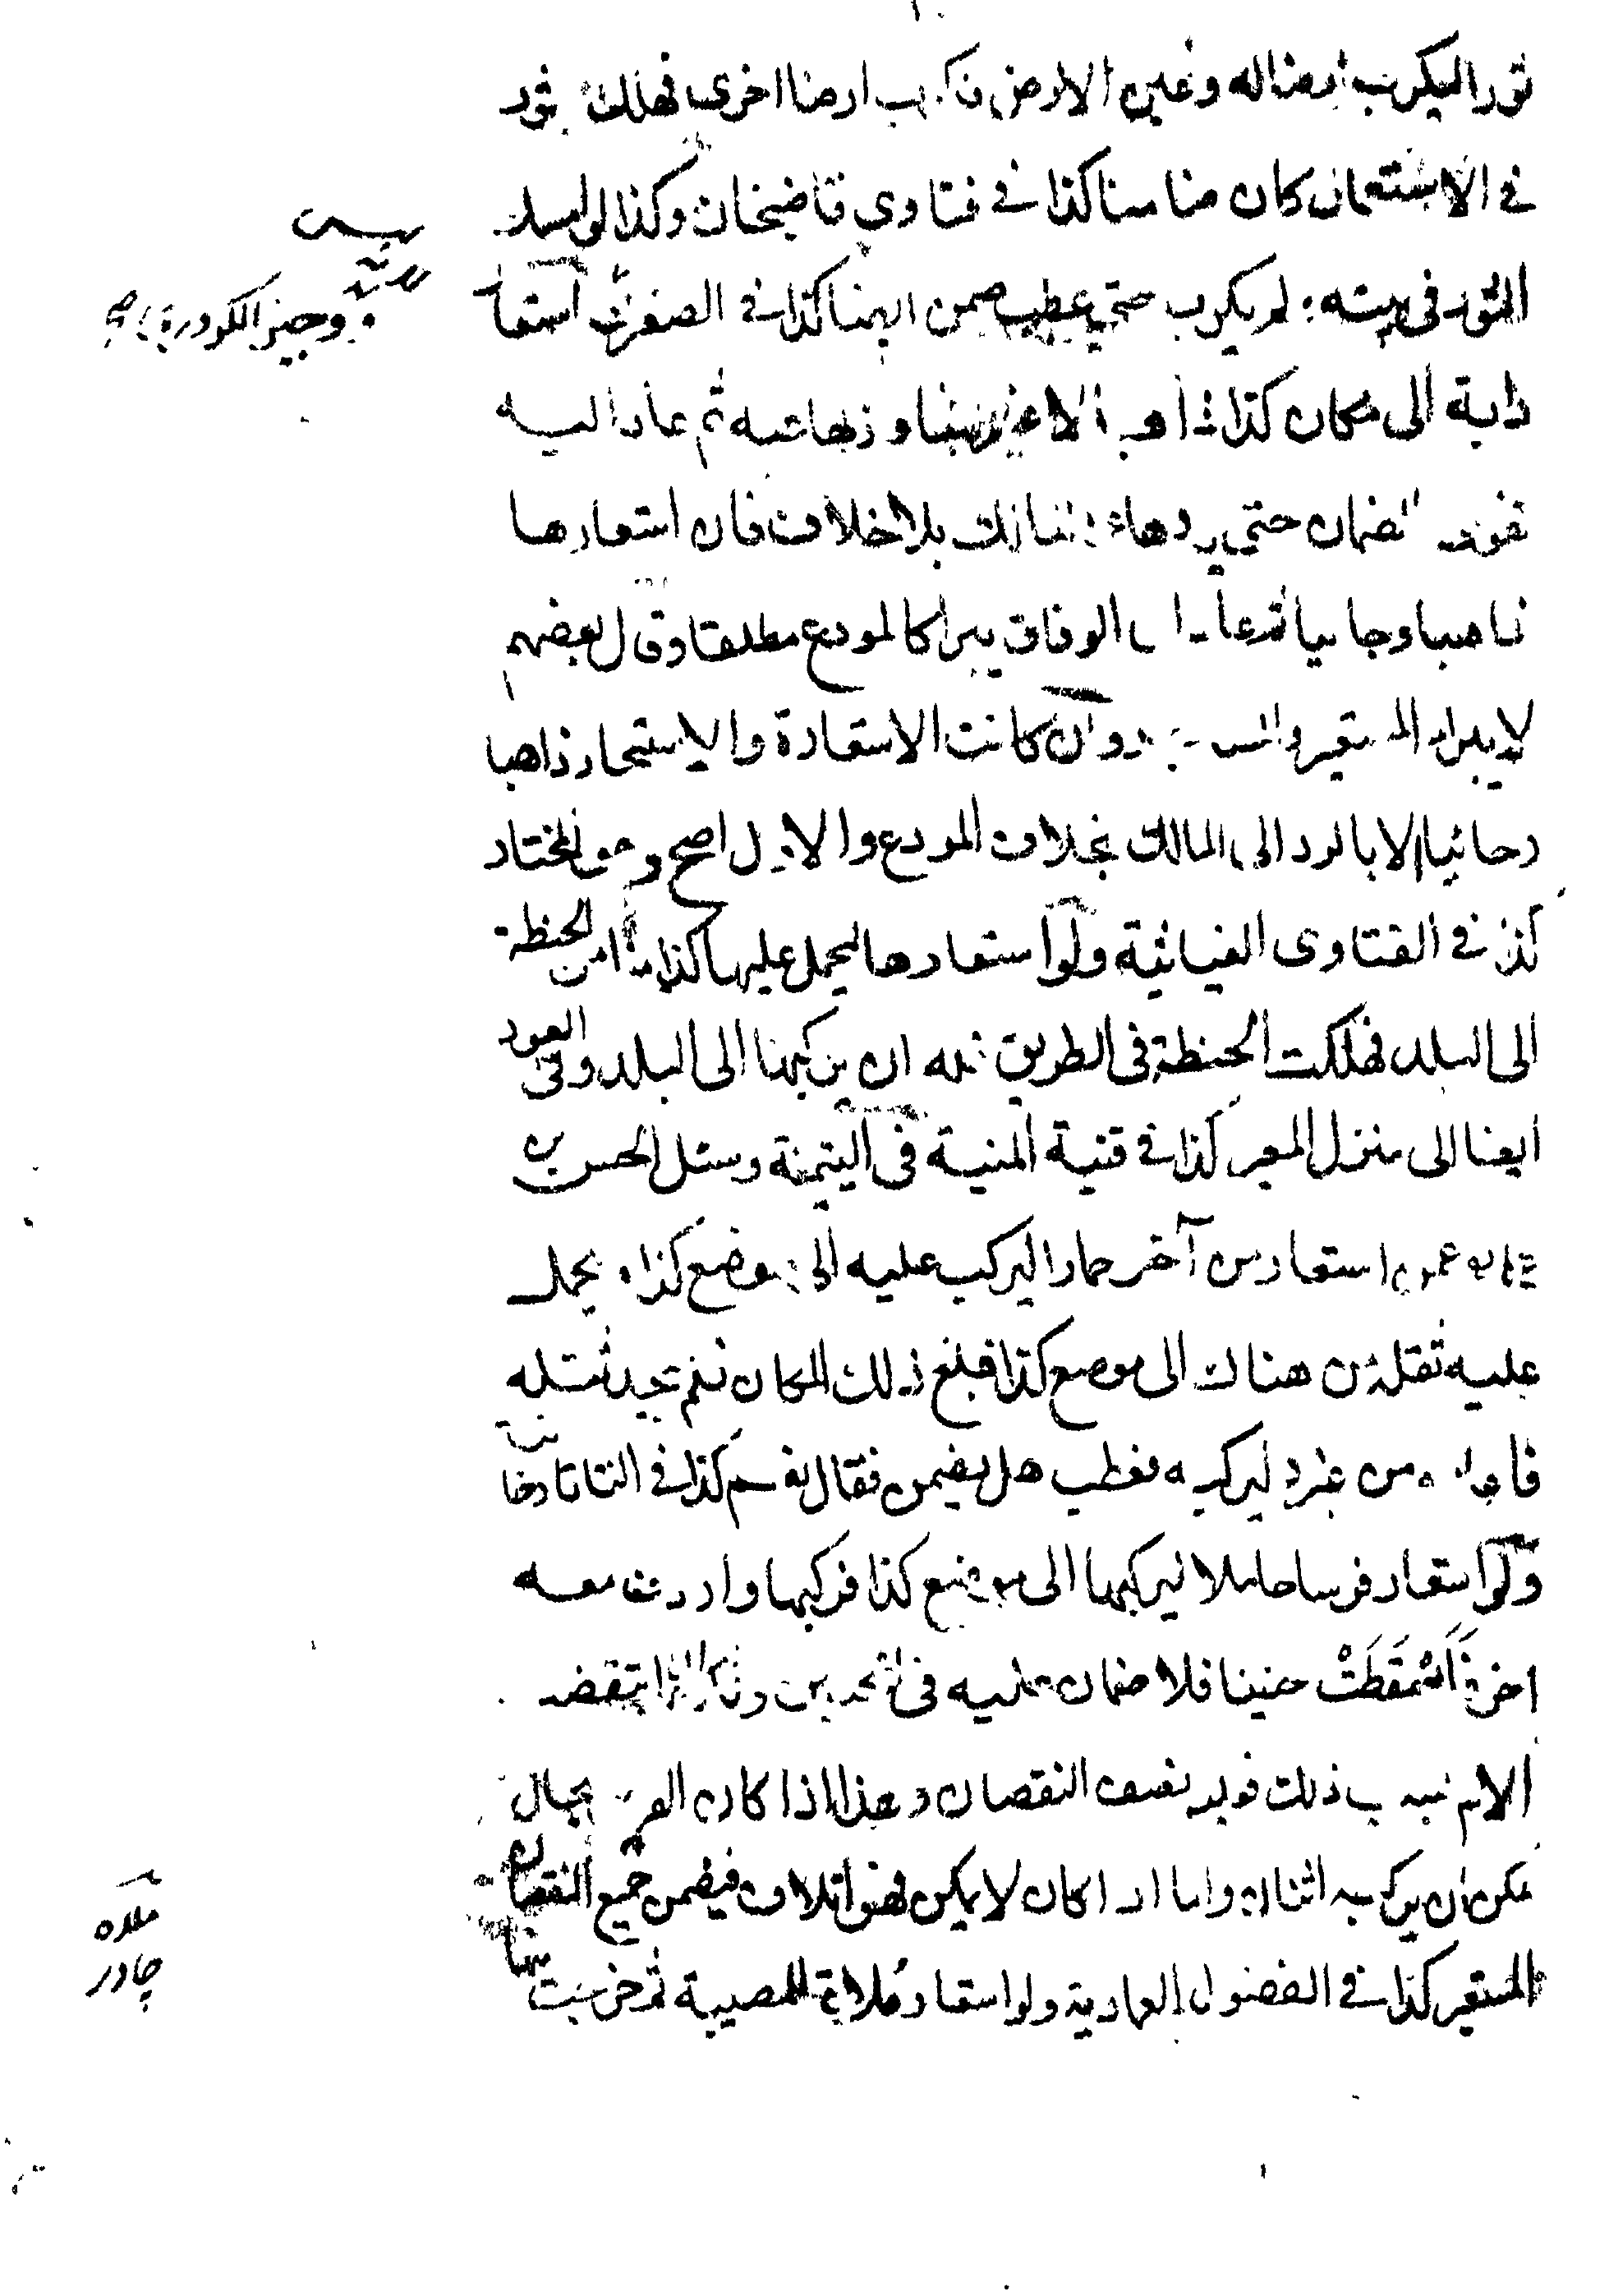 ثور اليكرب ارضا له وعين الارض فكرب ارضا اخرى فهلك الثور
في الاستعمال كان ضامنا كذا في فتاوى قاضيخان وكذا لو امسك
الثور في بيته ولم يكرب حتى عطب ضمن ايضا كذا في الصغرى استعار
دابة الى مكان كذا ذاهبا لا غير فجاوز بها عنه ثم عاد اليه
فهو الضمان حتى يردها الى المالك بلا خلاف فان استعارها
ذاهبا وجائيا ثم عاد الى الوفاق يبرأ كالمودع مطلقا وقال بعضهم
لا يبرأ المستعير والمستأجر وان كانت الاستعارة والاستيجار ذاهبا
وجائيا الا بالرد الى المالك بخلاف المودع والاول اصح وهو المختار
كذا في الفتاوى الغياثية ولو استعارها ليحمل عليها كذا منا من الحنطة
الى البلد فهلكت الحنطة في الطريق فله ان يركبها الى البلد وفي العود
ايضا الى منزل المعير كذا في قنية المنية في اليتيمة وسئل الحسن بن
علي عمن استعار من آخر حمارا ليركب عليه الى موضع كذا ويحمل
عليه ثقله من هناك الى موضع كذا فبلغ ذلك المكان فلم يجد ثقله
من غيره ليركبه فعطب هل يضمن فقال نعم كذا في التتارخانية
ولو استعار فرسا حاملا ليركبها الى موضع كذا فركبها واردف معه
اخر فَاَسْقَطَتْ جنينا فلا ضمان عليه في الجنين ولكن اذا انتقصت
الام بسبب ذلك فعليه نصف النقصان وهذا اذا كان الفرس بحال
يمكن ان يركبه اثنان واما اذا كان لا يمكن فهو اتلاف فيضمن جميع النقصان
المستعير كذا في الفصول العمادية ولو استعارت ملاءة للمصيبة ثم خرجت
وجيز الكردري
ملاءه
چادر